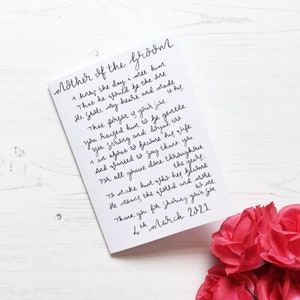 Mother of the Groom
I knew the day I met him
That he would be the one
He stole my heart and made it his
That person is your son
You raised him to be gentle
You strong and loyal
I'm about to become his wife
And wanted to say thank you
For all you've done throughout the years,
To make him who he's become
He means the world and more to me
Thank you for sharing your son
4th March 2021